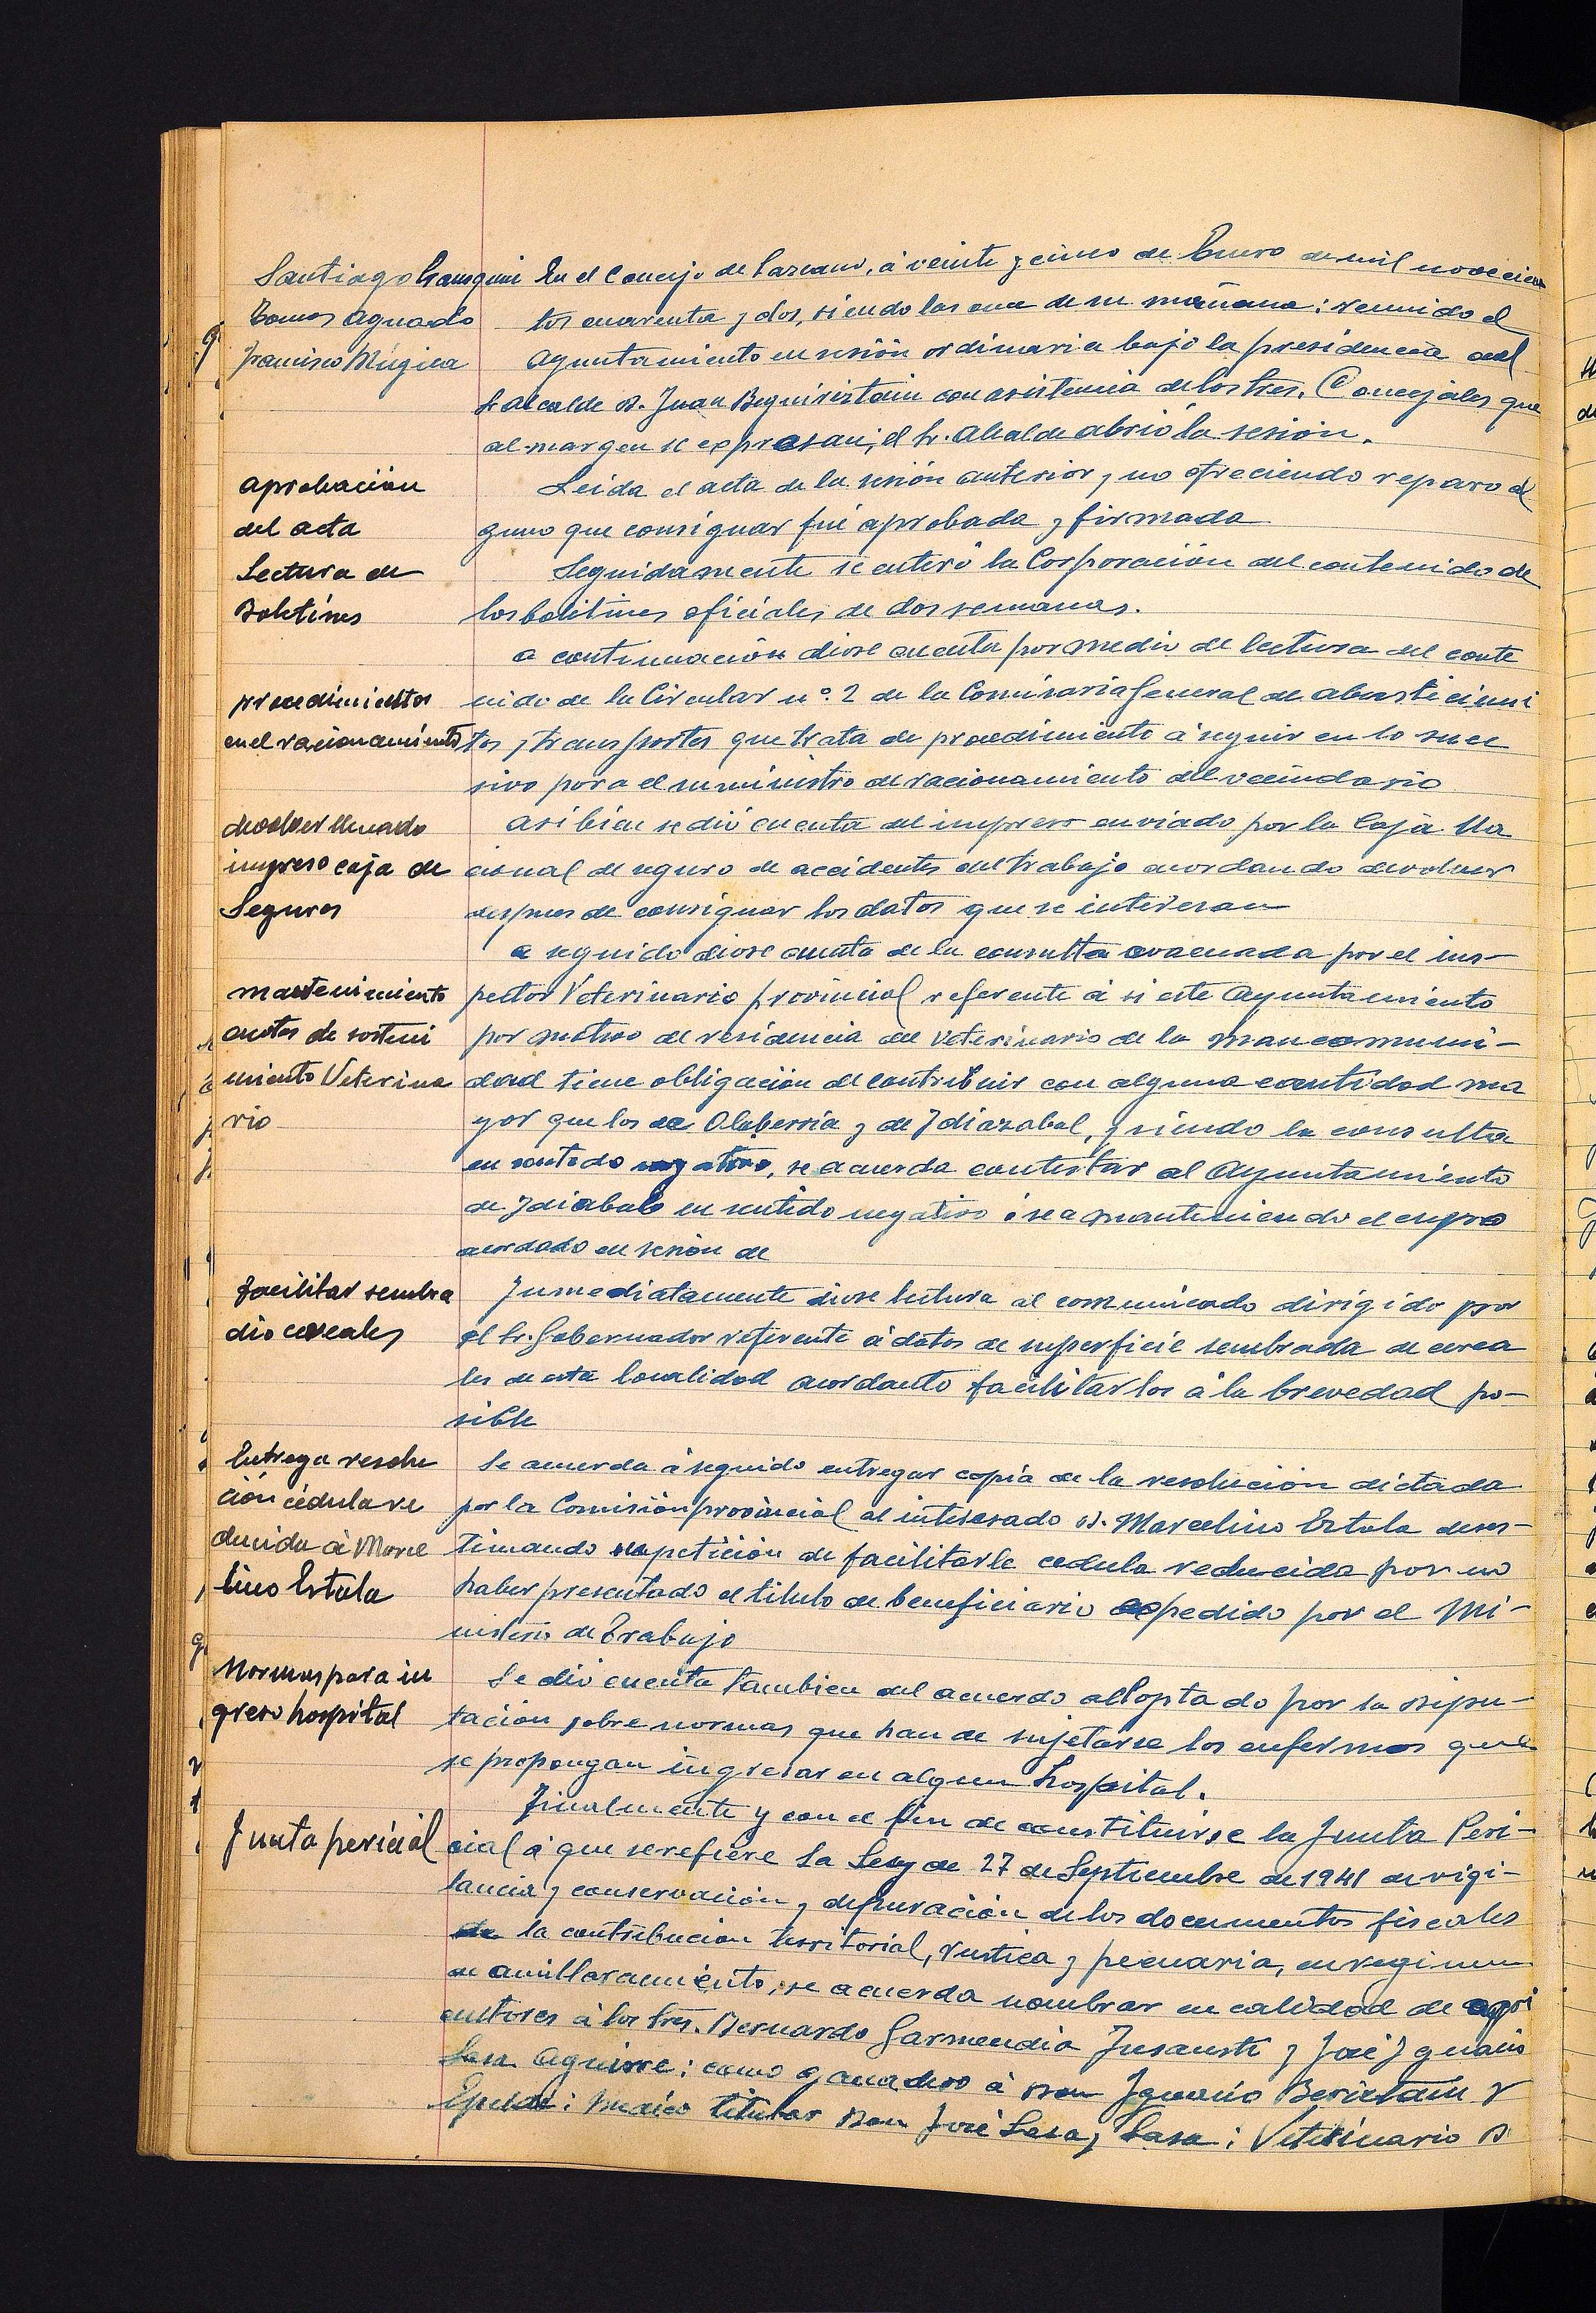 Santiago
Tomas Aguado
Francisco Múgica
En el Concejo de Lazcano, á veinte y cinco de Enero de mil novecien
tos cuarenta y dos, siendo las once de su mañana: reunido el
Ayuntamiento en sesión ordinaria bajo la presidencia del
Sr Alcalde D. Juan Beguiristain con asistencia de los Sres. Concejales que
al margen se expresan; el Sr. Alcalde abrió la sesión.
Aprobación
del acta
Leida el acta de la sesión anterior y no ofreciendo reparo al
guno que consignar fué aprobada y firmada
Lectura de
Boletines
Seguidamente se enteró la Corporación del contenido de
los boletines oficiales de dos semanas.
procedimientos
en el racionamiento
A continuación diose cuenta por medio de lectura del conte
nido de la Circular nº. 2 de la Comisaria General de Abastecimi
tos y transportes que trata de procedimiento á seguir en lo suce
sivo para el suministro de racionamiento del vecindario
devolver llenado
impreso caja de
Seguros
Asi bien se dió cuenta del impreso enviado por la Caja Na
cional de seguro de accidentes del trabajo acordando devolver
despues de consignar los datos que se interesan
mantenimiento
cuotas de sosteni
miento Veterina
rio
A seguido diose cuenta de la consulta evacuada por el ins-
pector Veterinario provincial referente á si este Ayuntamiento
por motivo de residencia del Veterinario de la mancomuni-
dad tiene obligación de contribuir con alguna cantidad ma
yor que los de Olaberria y de Idiazabal, y siendo la consulta
en sentido negativo, se acuerda contestar al Ayuntamiento
de Idiabal en sentido negativo ó sea manteniendo el
acordado en sesión de
facilitar sembra
dio cereales
Inmediatamente diose lectura al comunicado dirigido por
el Sr. Gobernador referente á datos de superficie sembrada de cerea
les de esta localidad acordanto facilitarlos á la brevedad po-
sible
Entrega resolu
ción cédula re
ducida á Marce
lino Estala
Se acuerda á seguido entregar copia de la resolución dictada
por la Comisión provincial al interesado D. Marcelino Estala deses-
timando su petición de facilitarle cedula reducida por no
haber presentado el titulo de beneficiario expedido por el Mi-
nisterio de Trabajo
Normas para in
greso hospital
Se dió cuenta tambien del acuerdo adoptado por la Dipu-
tación sobre normas que han de sujetarse los enfermos que
se propongan ingresar en algun hospital.
Junta pericial
Finalmente y con el fin de constituirse la Junta Peri-
cial á que se refiere la Ley de 27 de Septiembre de 1941 de vigi-
lancia y conservación y depuración de los documentos fiscales
de la contribución territorial, rustica y pecuaria, en regimen
de amillaramiento, se acuerda nombrar en calidad de agri
cultores á los Sres. Bernardo Garmendia Insausti y José Ignacio
Sasa Aguirre: como ganadero á Don Ignacio Beristain y
Epelde: Medico titular Don José Lasa y Lasa: Veterinario D